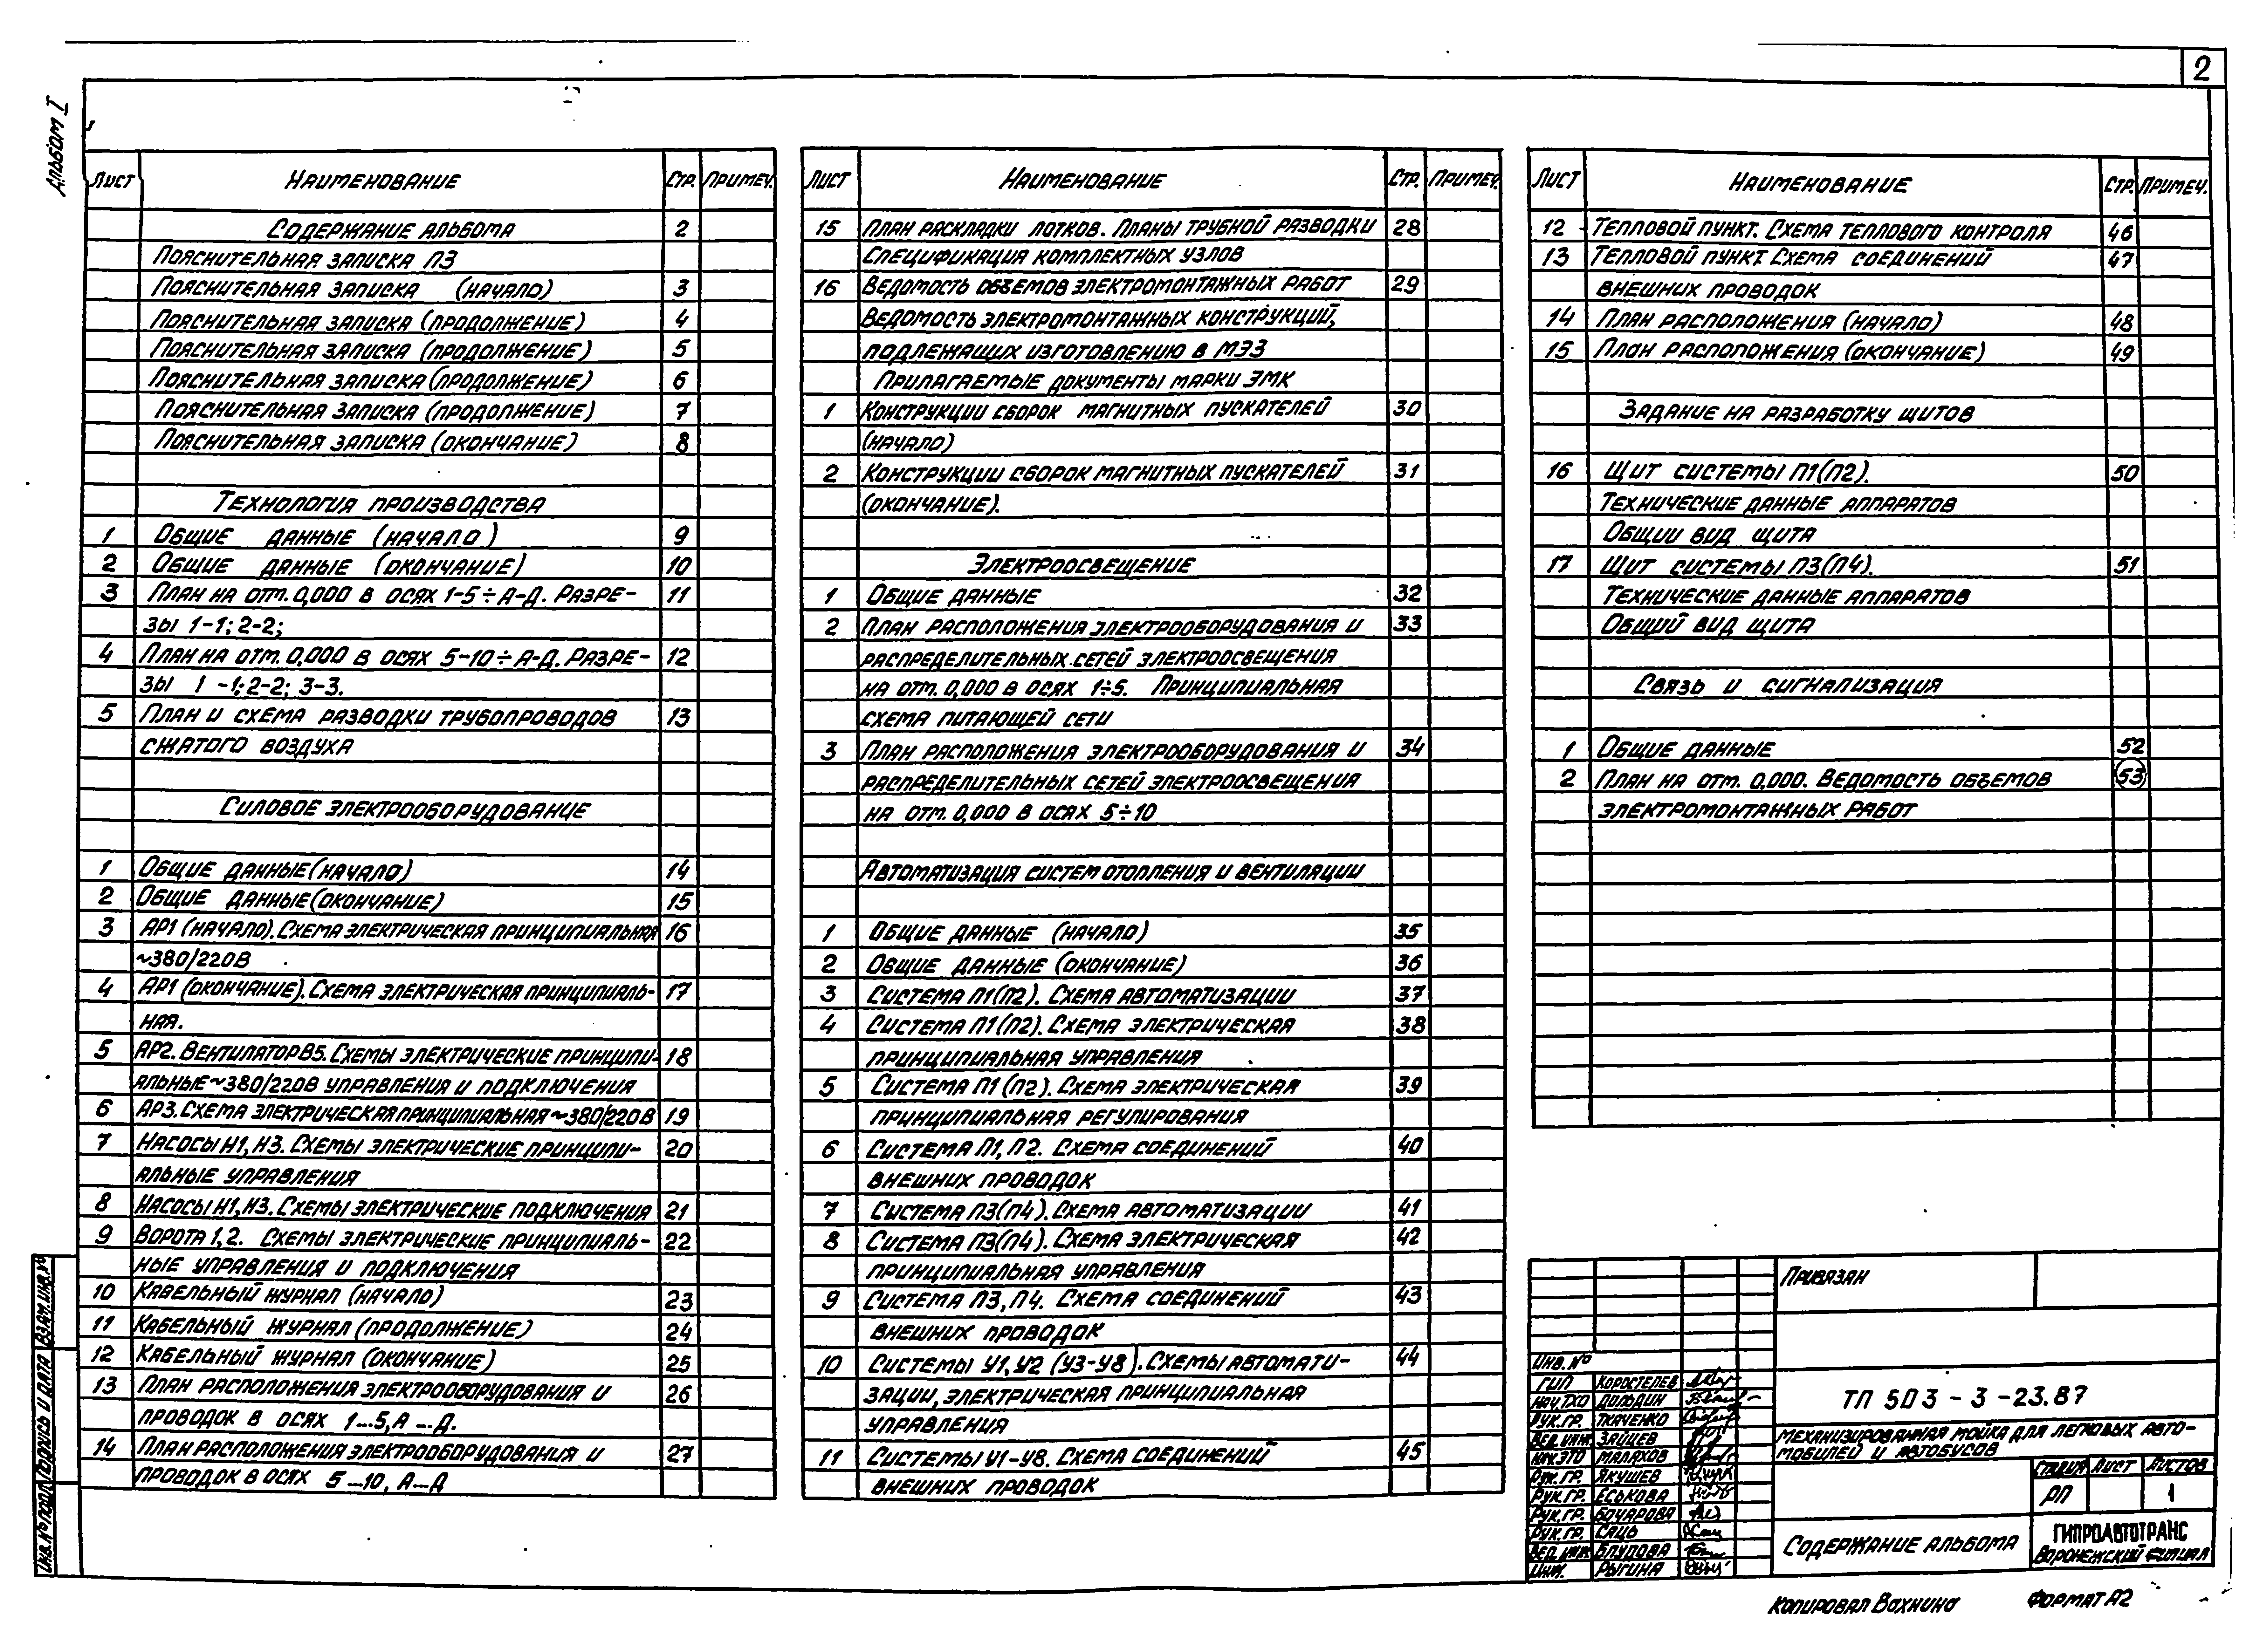 2
Альбом I
Лист Наименование Стр. Примеч.
Содержание альбома 2
Пояснительная записка ПЗ
Пояснительная записка (начало) 3
Пояснительная записка (продолжение) 4
Пояснительная записка (продолжение) 5
Пояснительная записка (продолжение) 6
Пояснительная записка (продолжение) 7
Пояснительная записка (окончание) 8
Технология производства
1 Общие данные (начало) 9
2 Общие данные (окончание) 10
3 План на отм. 0,000 в осях 1-5÷А-Д. Разре- 11
зы 1-1; 2-2;
4 План на отм. 0,000 в осях 5-10÷А-Д. Разре- 12
зы 1-1; 2-2; 3-3.
5 План и схема разводки трубопроводов 13
сжатого воздуха
Силовое электрооборудование
1 Общие данные (начало) 14
2 Общие данные (окончание) 15
3 АР1 (начало). Схема электрическая принципиальная 16
~380/220В
4 АР1 (окончание). Схема электрическая принципиаль- 17
ная.
5 АР2. Вентилятор В5. Схемы электрические принципи- 18
альные ~380/220В управления и подключения
6 АР3. Схема электрическая принципиальная ~380/220В 19
7 Насосы Н1, Н3. Схемы электрические принципи- 20
альные управления
8 Насосы Н1, Н3. Схемы электрические подключения 21
9 Ворота 1, 2. Схемы электрические принципиаль- 22
ные управления и подключения
10 Кабельный журнал (начало) 23
11 Кабельный журнал (продолжение) 24
12 Кабельный журнал (окончание) 25
13 План расположения электрооборудования и 26
проводок в осях 1...5, А...Д.
14 План расположения электрооборудования и 27
проводок в осях 5...10, А...Д
Лист Наименование Стр. Примеч.
15 План раскладки лотков. Планы трубной разводки 28
Спецификация комплектных узлов
16 Ведомость объемов электромонтажных работ 29
Ведомость электромонтажных конструкций,
подлежащих изготовлению в МЭЗ
Прилагаемые документы марки ЭМК
1 Конструкции сборок магнитных пускателей 30
(начало)
2 Конструкции сборок магнитных пускателей 31
(окончание).
Электроосвещение
1 Общие данные 32
2 План расположения электрооборудования и 33
распределительных сетей электроосвещения
на отм. 0,000 в осях 1÷5. Принципиальная
схема питающей сети
3 План расположения электрооборудования и 34
распределительных сетей электроосвещения
на отм. 0,000 в осях 5÷10
Автоматизация систем отопления и вентиляции
1 Общие данные (начало) 35
2 Общие данные (окончание) 36
3 Система П1(П2). Схема автоматизации 37
4 Система П1(П2). Схема электрическая 38
принципиальная управления
5 Система П1(П2). Схема электрическая 39
принципиальная регулирования
6 Система П1, П2. Схема соединений 40
внешних проводок
7 Система П3(П4). Схема автоматизации 41
8 Система П3(П4). Схема электрическая 42
принципиальная управления
9 Система П3, П4. Схема соединений 43
внешних проводок
10 Системы У1, У2 (У3-У8). Схемы автомати- 44
зации, электрическая принципиальная
управления
11 Системы У1-У8. Схема соединений 45
внешних проводок
Лист Наименование Стр. Примеч.
12 Тепловой пункт. Схема теплового контроля 46
13 Тепловой пункт Схема соединений 47
внешних проводок
14 План расположения (начало) 48
15 План расположения (окончание) 49
Задание на разработку щитов
16 Щит системы П1(П2). 50
Технические данные аппаратов
Общий вид щита
17 Щит системы П3(П4). 51
Технические данные аппаратов
Общий вид щита
Связь и сигнализация
1 Общие данные 52
2 План на отм. 0,000. Ведомость объемов 53
электромонтажных работ
Привязан
Инв. №
ГИП Коростелев
Нач. ТХО Дильдин
Рук. гр. Ткаченко
Вед. инж. Зайцев
Нач. ЭТО Малахов
Рук. гр. Якушев
Рук. гр. Еськова
Рук. гр. Бочарова
Рук. гр. Саць
Вед. инж. Блудова
Инж. Рыгина
ТП 503-3-23.87
Механизированная мойка для легковых авто-
мобилей и автобусов
Стадия Лист Листов
РП 1
Содержание альбома
ГИПРОАВТОТРАНС
Воронежский филиал
Копировал Вахнина Формат А2
Инв. № подл. Подпись и дата Взам. инв. №